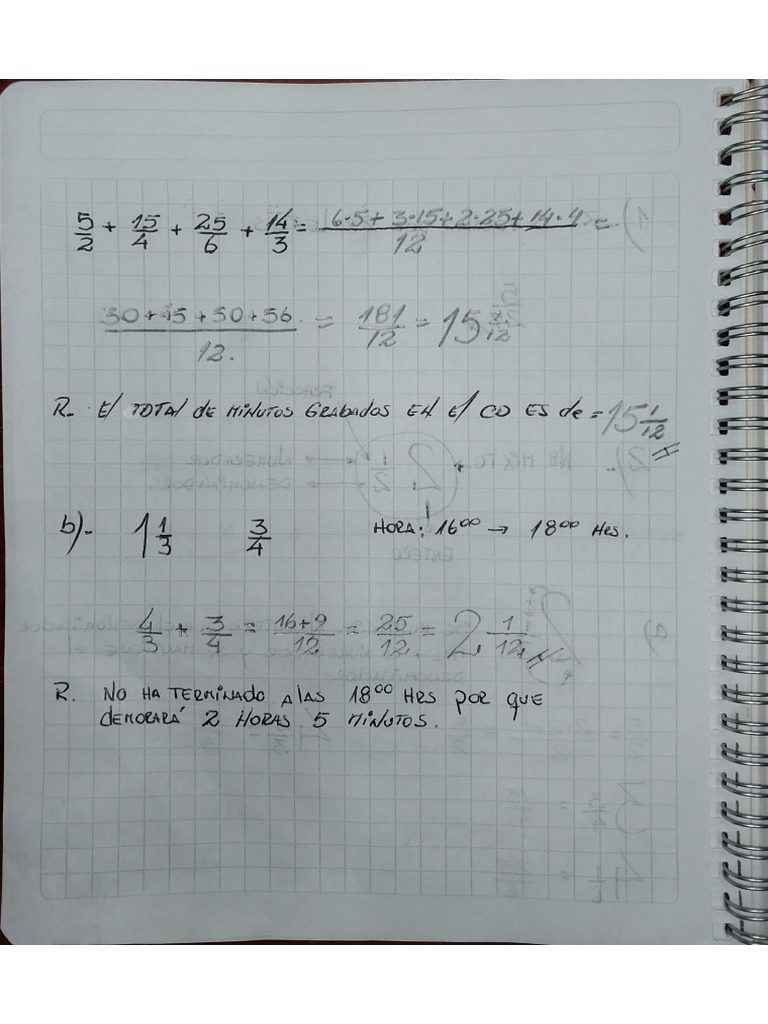 5/2 + 15/4 + 25/6 + 14/3 = 6·5 + 3·15 + 2·25 + 14·4 / 12 =
30+45+50+56 / 12. = 181/12 = 15 1/12
R- El TOTAl DE MINUTOS GRABADOS EN El CD ES de = 15 1/12 //
b)- 1 1/3 3/4 HORA: 16⁰⁰ → 18⁰⁰ Hrs.
4/3 + 3/4 = 16+9/12 = 25/12 = 2 1/12 //
R. NO HA TERMINADO A lAS 18⁰⁰ HRS POR QUE
DEMORARÁ 2 HORAS 5 MINUTOS.